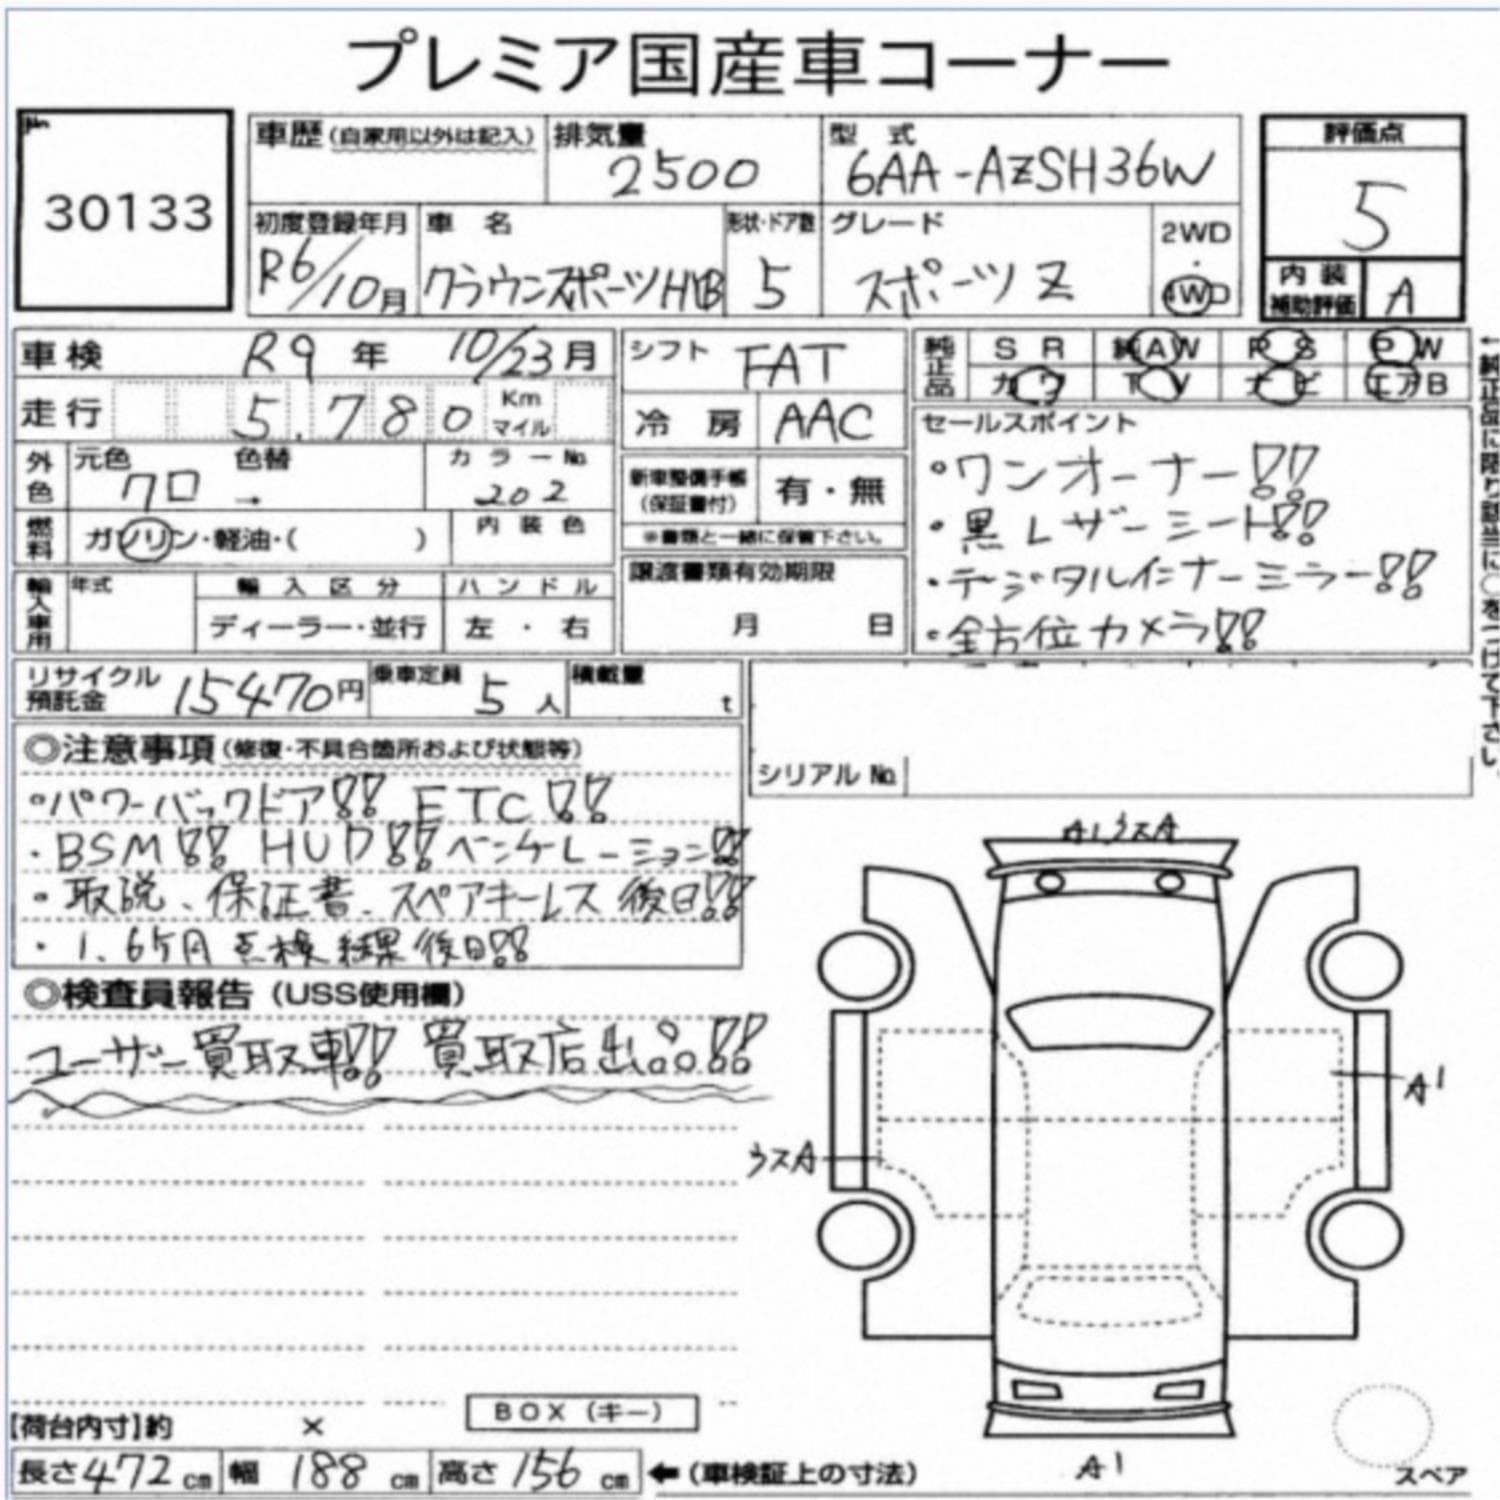 プレミア国産車コーナー
No.
30133
車歴(自家用以外は記入)
排気量
2500
型 式
6AA-AZSH36W
評価点
5
初度登録年月
R6/10月
車 名
クラウンスポーツHYB
形状・ドア数
5
グレード
スポーツ Z
2WD
・
4WD
内 装
補助評価
A
車検 R9 年 10/23月
シフト FAT
純正品
SR 純AW PS PW
カワ TV ナビ エアB
←純正品に限り該当に○をつけて下さい。
走行 5,780 Km
マイル
冷 房 AAC
セールスポイント
・ワンオーナー!!
・黒レザーシート!!
・デジタルインナーミラー!!
・全方位カメラ!!
外色
元色 クロ → 色替
カラーNo.
202
新車整備手帳
(保証書付)
有・無
※書類と一緒に保管下さい。
燃料
ガソリン・軽油・( )
内 装 色
輸入車用
年式
輸 入 区 分
ディーラー・並行
ハンドル
左 ・ 右
譲渡書類有効期限
月 日
リサイクル
預託金 15470円
乗車定員
5人
積載量
t
シリアルNo.
◎注意事項(修復・不具合箇所および状態等)
・パワーバックドア!! ETC!!
・BSM!! HUD!! ベンチレーション!!
・取説、保証書、スペアキーレス 後日!!
・1、6ケ月点検結果後日!!
◎検査員報告(USS使用欄)
ユーザー買取車!! 買取店出品!!
A1ウスA
A1
ウスA
A1
スペア
[荷台内寸]約 ×
BOX(キー)
長さ472cm 幅188cm 高さ156cm ←(車検証上の寸法)